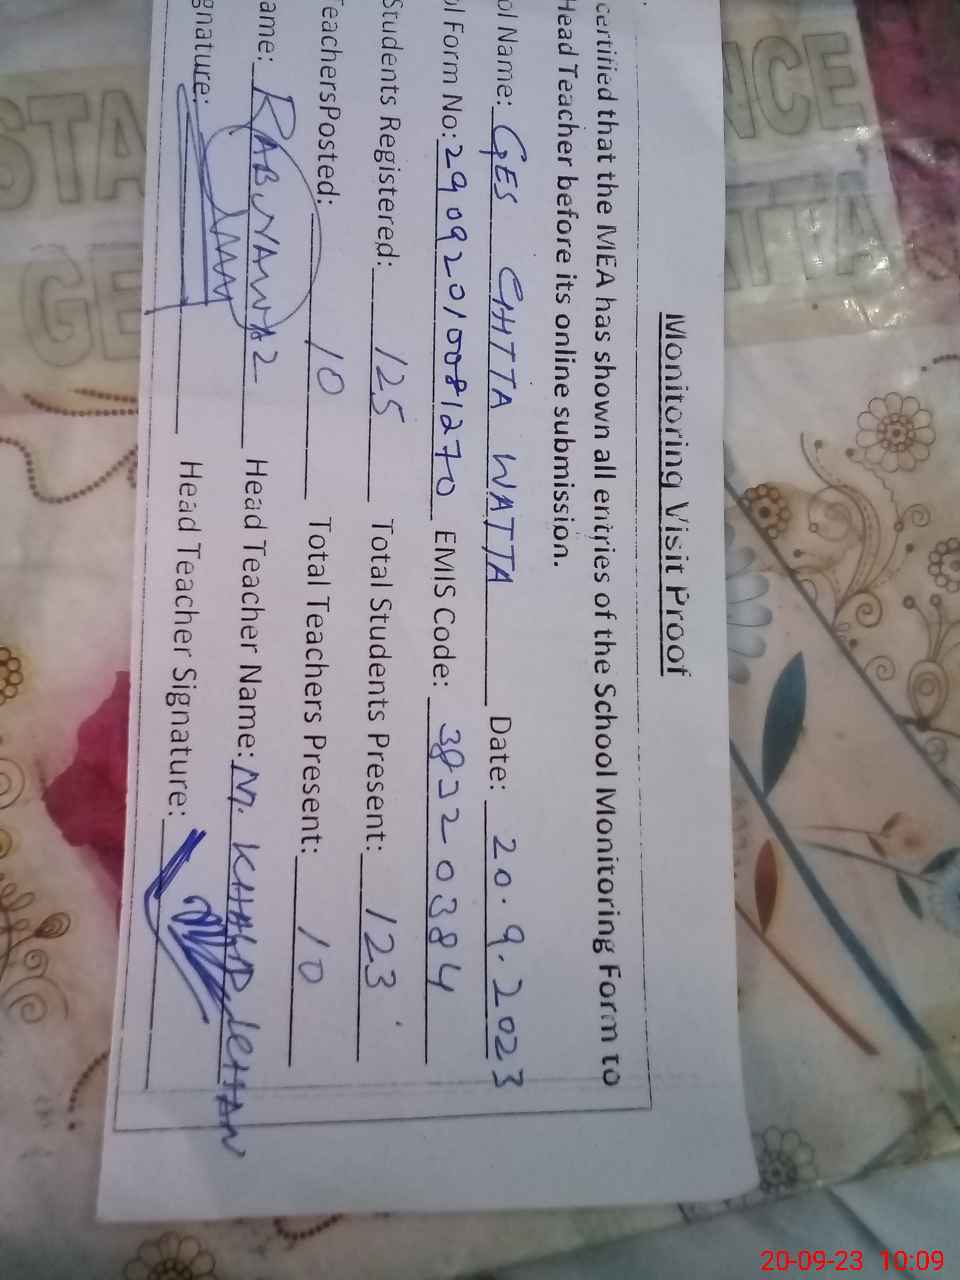 Monitoring Visit Proof
certified that the MEA has shown all entries of the School Monitoring Form to
Head Teacher before its online submission.
ol Name: GES CHTTA WATTA Date: 20.9.2023
ol Form No: 29092010081270 EMIS Code: 38320384
Students Registered: 125 Total Students Present: 123
TeachersPosted: 10 Total Teachers Present: 10
ame: RAB NAWAZ Head Teacher Name: M. KHALID
gnature: Head Teacher Signature:
STA
GE
NCE
ATTA
20-09-23 10:09